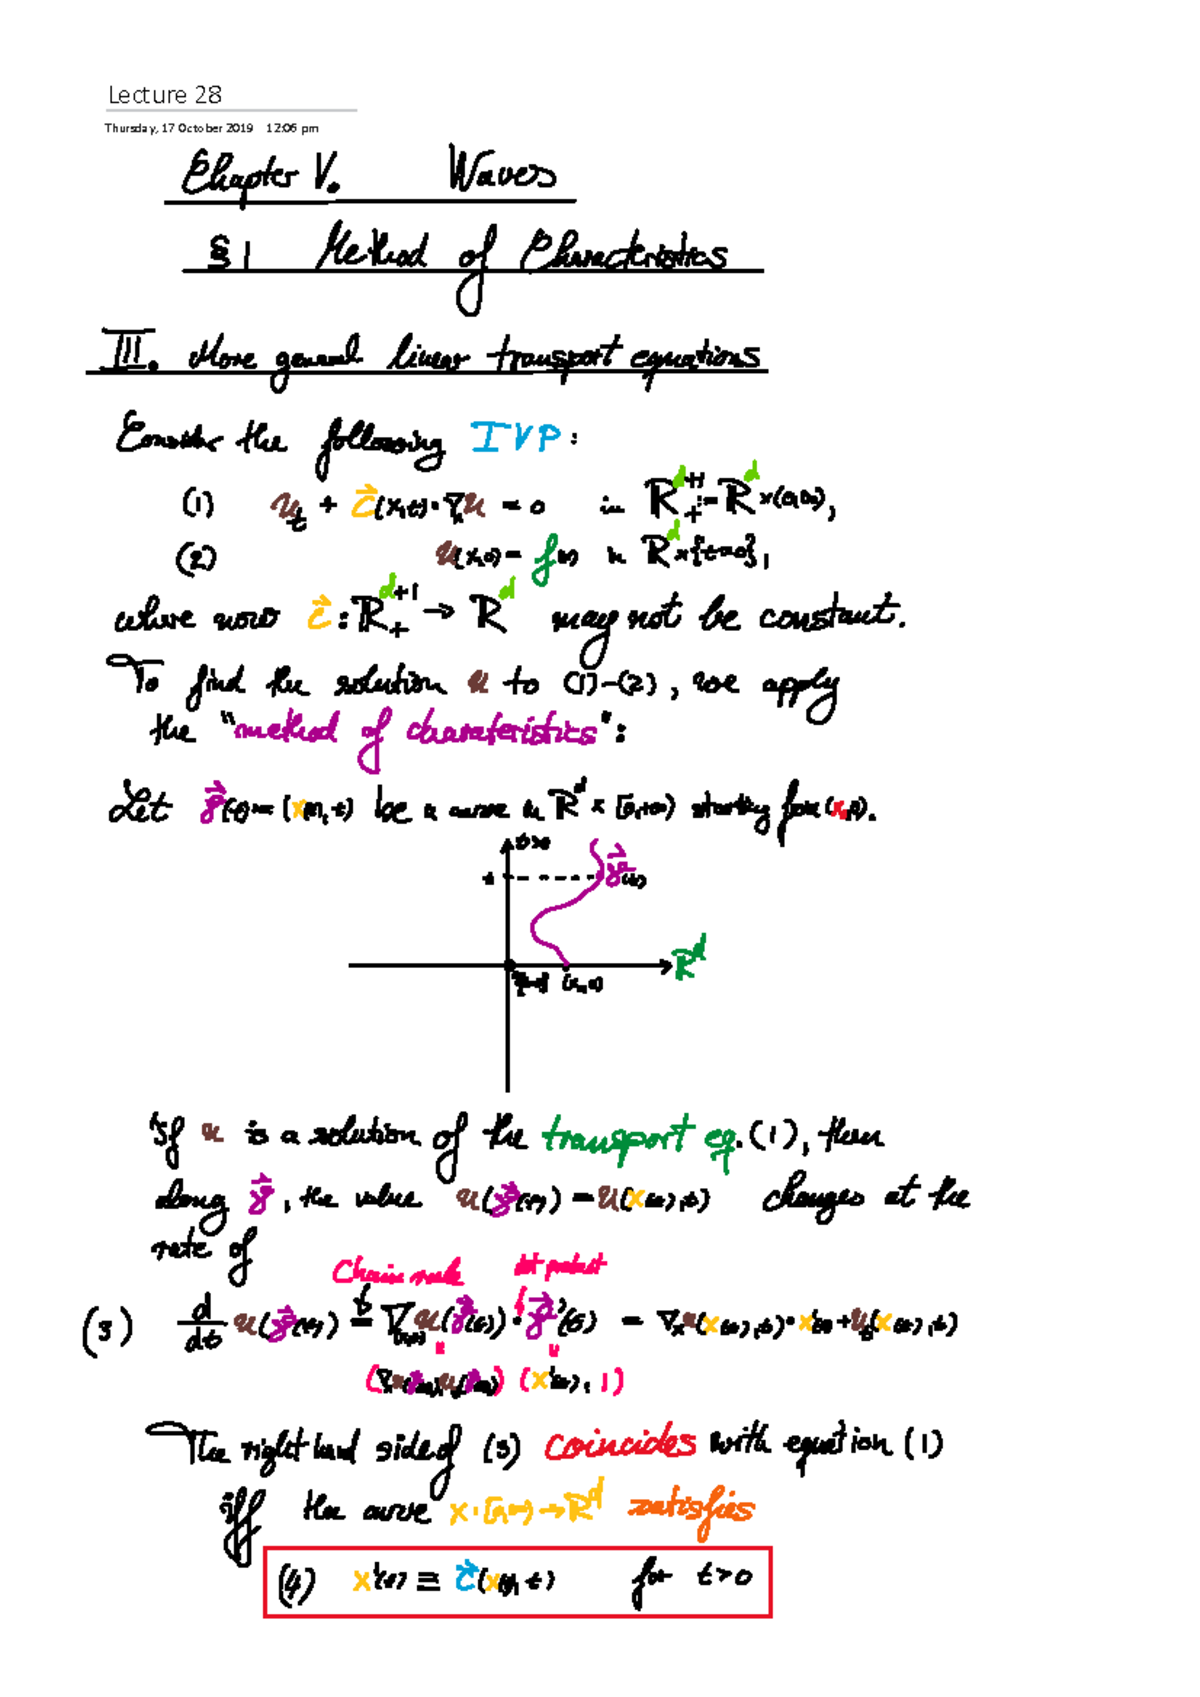 Lecture 28
Thursday, 17 October 2019 12:06 pm
Chapter V. Waves
§1 Method of Characteristics
III. More general linear transport equations
Consider the following IVP:
(1) u_t + c⃗(x,t)·∇_x u = 0 in ℝ^{d+1}_+ := ℝ^d×(0,∞),
(2) u(x,0) = f(x) in ℝ^d×{t=0},
where now c⃗ : ℝ^{d+1}_+ → ℝ^d may not be constant.
To find the solution u to (1)-(2), we apply
the "method of charateristics":
Let γ⃗(t) = (x(t), t) be a curve in ℝ^d × [0,+∞) starting from (x₀,0).
t>0
t γ⃗(t)
ℝ^d
(x₀,0)
If u is a solution of the transport eq. (1), then
along γ⃗, the value u(γ⃗(t)) = u(x(t),t) changes at the
rate of
Chain rule dot product
(3) d/dt u(γ⃗(t)) = ∇_{(x,t)} u(γ⃗(t)) · γ⃗'(t) = ∇_x u(x(t),t)·x'(t)+u_t(x(t),t)
(∇_x u(γ⃗(t)), u_t(γ⃗(t))) (x'(t), 1)
The right hand side of (3) coincides with equation (1)
iff the curve x:[0,∞)→ℝ^d satisfies
(4) x'(t) ≡ c⃗(x(t), t) for t>0